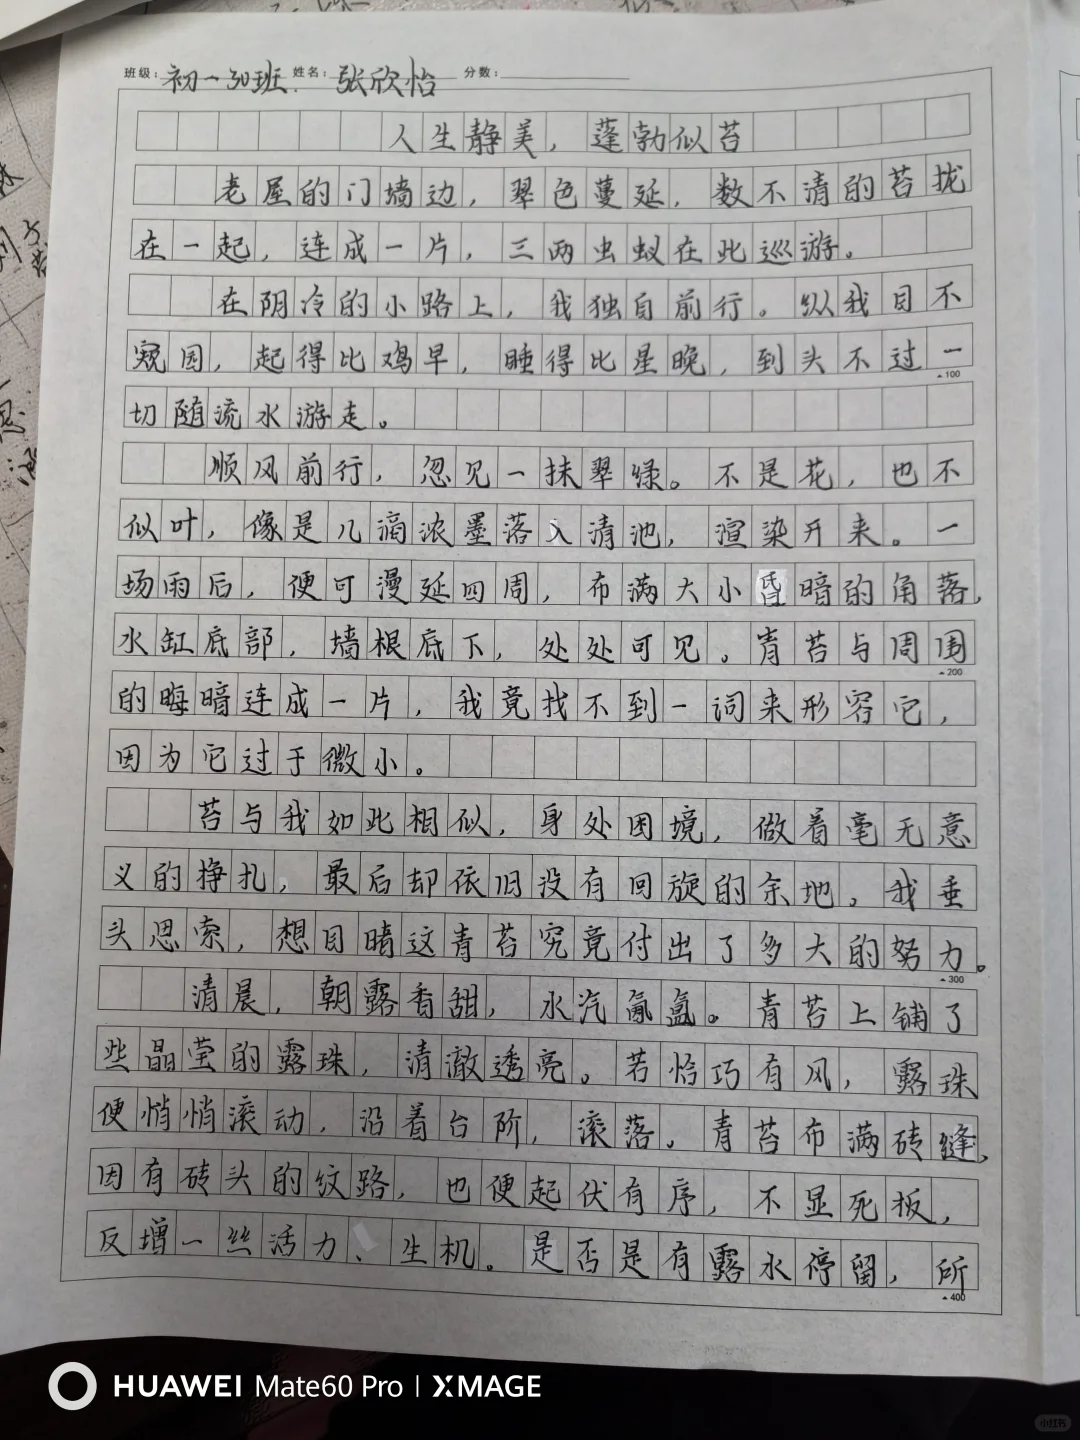 班级：初一30班. 姓名：张欣怡 分数：
人生静美，蓬勃似苔
老屋的门墙边，翠色蔓延，数不清的苔拢
在一起，连成一片，三两虫蚁在此巡游。
在阴冷的小路上，我独自前行。纵我目不
窥园，起得比鸡早，睡得比星晚，到头不过一
100
切随流水游走。
顺风前行，忽见一抹翠绿。不是花，也不
似叶，像是几滴浓墨落入清池，渲染开来。一
场雨后，便可漫延四周，布满大小昏暗的角落，
水缸底部，墙根底下，处处可见。青苔与周围
200
的晦暗连成一片，我竟找不到一词来形容它，
因为它过于微小。
苔与我如此相似，身处困境，做着毫无意
义的挣扎，最后却依旧没有回旋的余地。我垂
头思索，想目睛这青苔究竟付出了多大的努力。
300
清晨，朝露香甜，水汽氤氲。青苔上铺了
些晶莹的露珠，清澈透亮。若恰巧有风，露珠
便悄悄滚动，沿着台阶，滚落。青苔布满砖缝，
因有砖头的纹路，也便起伏有序，不显死板，
反增一丝活力、生机。是否是有露水停留，所
400
HUAWEI Mate60 Pro | XMAGE
小红书